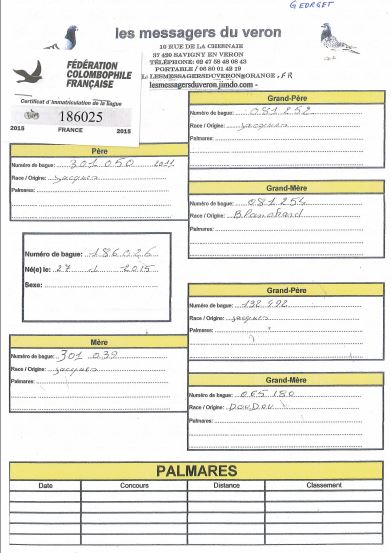 GEORGET
les messagers du veron
10 RUE DE LA CHESNAIE
37 420 SAVIGNY EN VERON
TÉLÉPHONE: 02 47 58 48 08 43
PORTABLE / 06 80 01 42 19
L: LESMESSAGERSDUVERON@ORANGE.FR
lesmessagersduveron.jimdo.com -
FÉDÉRATION
COLOMBOPHILE
FRANÇAISE
Certificat d'immatriculation de la bague
186025
2015 FRANCE 2015
Grand-Père
Numéro de bague: 081 252
Race / Origine: Jacques
Palmares:
Père
Numéro de bague: 301 050 2011
Race / Origine: Jacques
Palmares:
Grand-Mère
Numéro de bague: 081 254
Race / Origine: Blanchard
Palmares:
Numéro de bague: 186026
Né(e) le: 27 1 2015
Sexe:
Grand-Père
Numéro de bague: 132 492
Race / Origine: Jacques
Palmares:
Mère
Numéro de bague: 301 039
Race / Origine: Jacques
Palmares:
Grand-Mère
Numéro de bague: 065 180
Race / Origine: DouDou
Palmares:
PALMARES
Date Concours Distance Classement